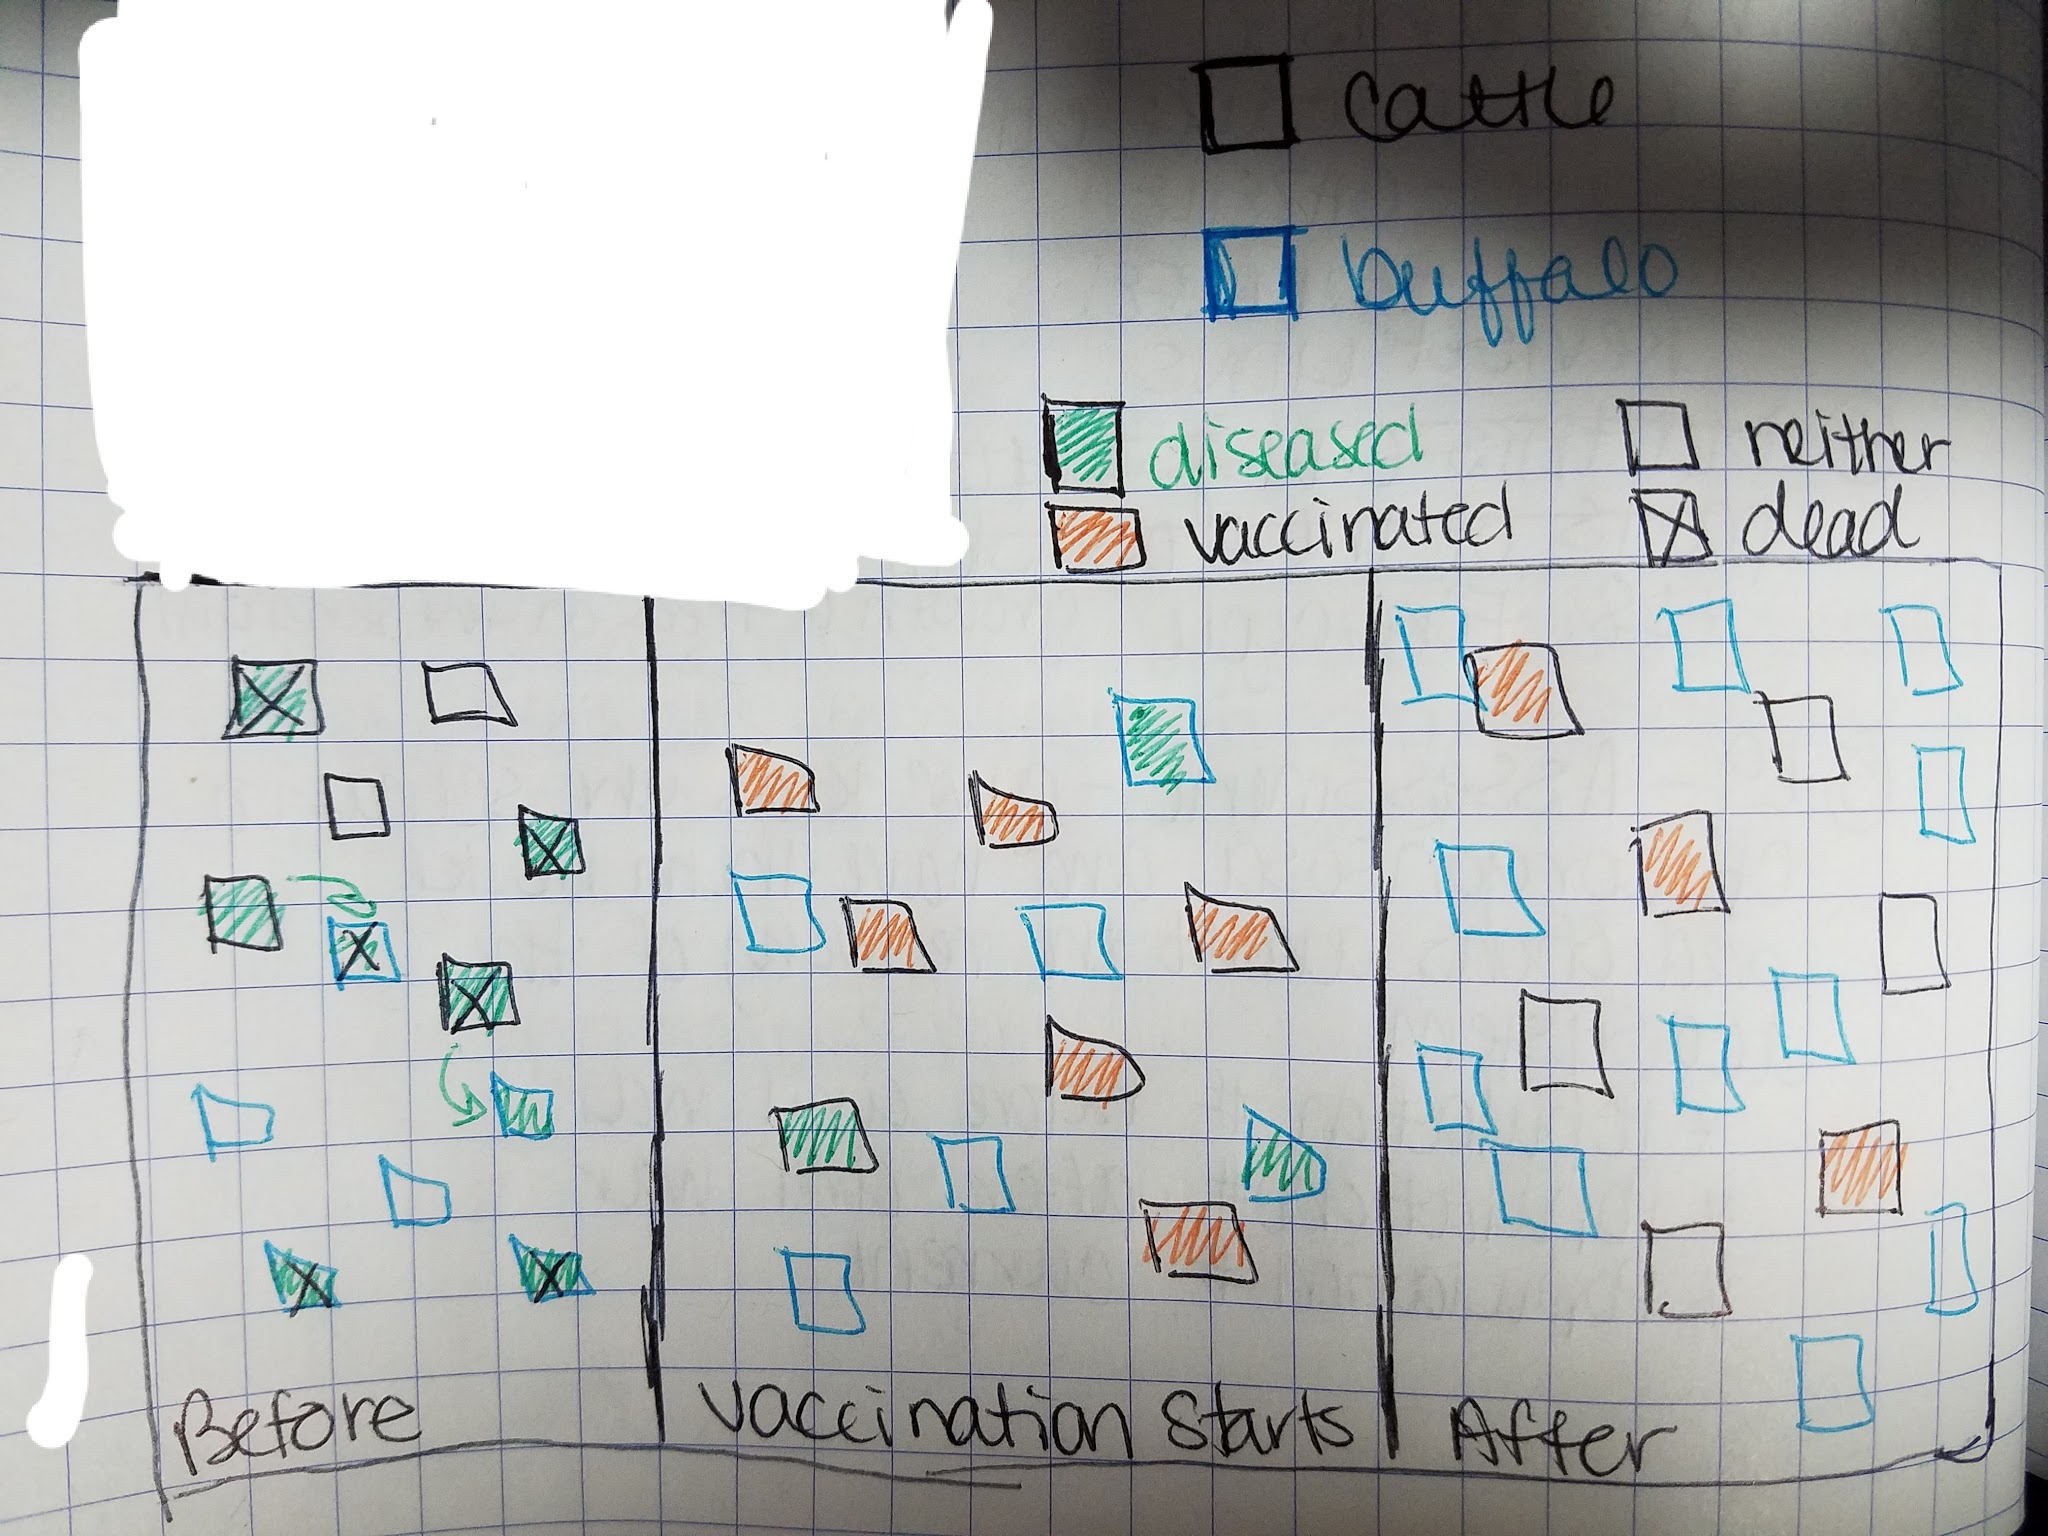 cattle
buffalo
diseased neither
vaccinated dead
Before vaccination starts After